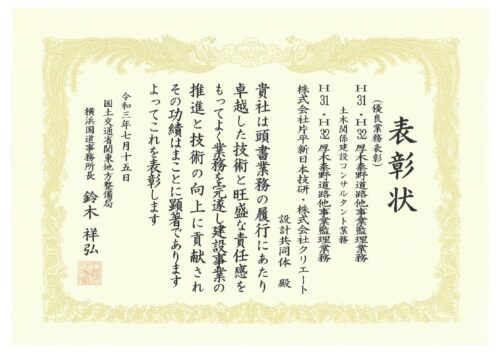 表彰状
(優良業務表彰)
H31・H32厚木秦野道路他事業監理業務
土木関係建設コンサルタント業務
H31・H32厚木秦野道路他事業監理業務
株式会社片平新日本技研・株式会社クリエート
設計共同体 殿
貴社は頭書業務の履行にあたり
卓越した技術と旺盛な責任感を
もってよく業務を完遂し建設事業の
推進と技術の向上に貢献され
その功績はまことに顕著であります
よってこれを表彰します
令和三年七月十五日
国土交通省関東地方整備局
横浜国道事務所長 鈴木 祥弘